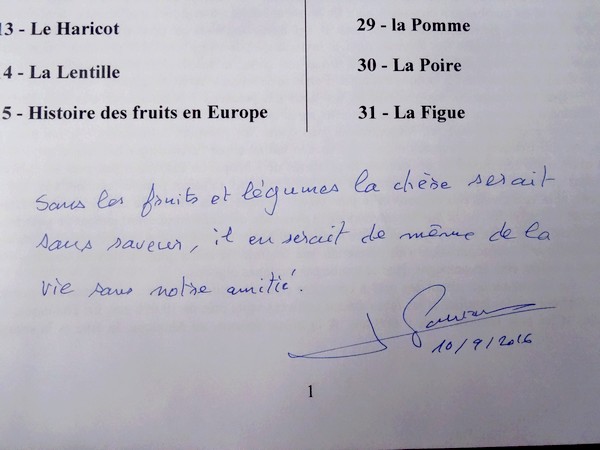 13 - Le Haricot
4 - La Lentille
5 - Histoire des fruits en Europe
29 - la Pomme
30 - La Poire
31 - La Figue
Sans les fruits et légumes la chère serait
sans saveur, il en serait de même de la
vie sans notre amitié.
10/9/2016
1